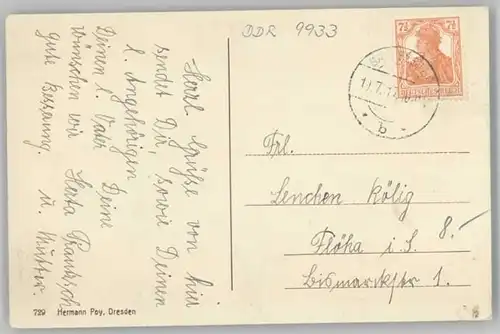 DDR 9933
Herzl. Grüße von hier
sendet Dir, sowie Deinen
l. Angehörigen
Deinen l. Vater Deine
wünschen wir Herta
gute Besserung. u. Mutter.
7½ 7½
b
Frl.
Lenchen Kölig
Flöha i. S. 8.-
Bismarckstr 1.
729 Hermann Poy, Dresden